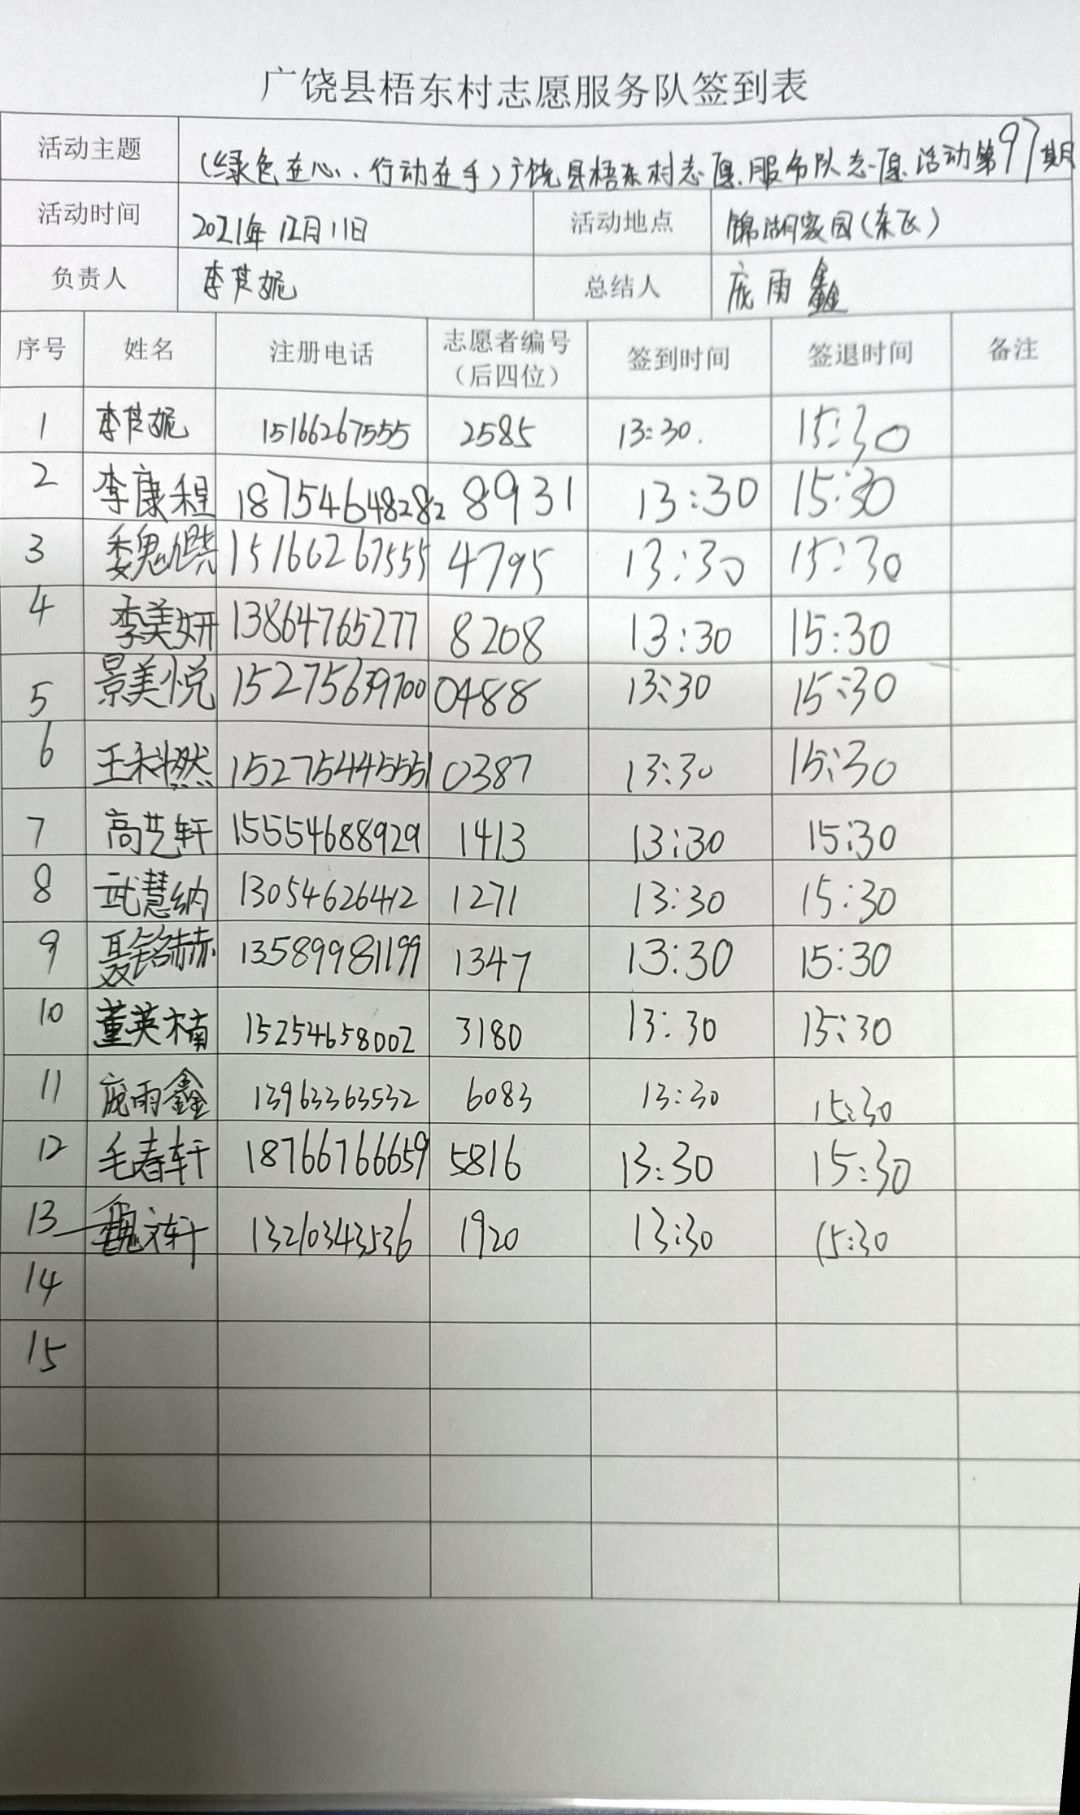 广饶县梧东村志愿服务队签到表
活动主题 (绿色在心、行动在手)广饶县梧东村志愿服务队志愿活动第97期
活动时间 2021年12月11日 活动地点 锦湖家园(东区)
负责人 李其妮 总结人 庞雨鑫
序号 姓名 注册电话 志愿者编号（后四位） 签到时间 签退时间 备注
1 李其妮 15166267555 2585 13:30. 15:30
2 李康程 18754648282 8931 13:30 15:30
3 15166267555 4795 13:30 15:30
4 李美妍 13864765277 8208 13:30 15:30
5 景美悦 15275639700 0488 13:30 15:30
6 王禾燃 15275444555 0387 13:30 15:30
7 高艺轩 15554688929 1413 13:30 15:30
8 武慧纳 13054626412 1271 13:30 15:30
9 聂铭赫 13589981199 1347 13:30 15:30
10 董英楠 15254658002 3180 13:30 15:30
11 庞雨鑫 13963363532 6083 13:30 15:30
12 毛春轩 18766766659 5816 13:30 15:30
13 魏文轩 13210343536 1920 13:30 15:30
14
15